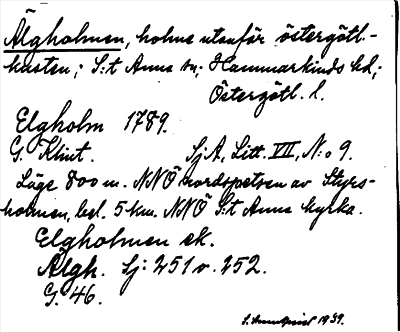 Älgholmen, holme utanför östergötl.-
kusten; S:t Anna sn; Hammarkinds hd;
Östergötl. l.
Elgholm 1789.
G. Klint. SjA, Litt. VII, N:o 9.
Läge 800 m. NNÖ nordspetsen av Styrs-
holmen, bel. 5 km. NNÖ S:t Anna kyrka.
Elgholmen ek.
Älgh. Sj: 251 v. 252.
G. 46.
1939.